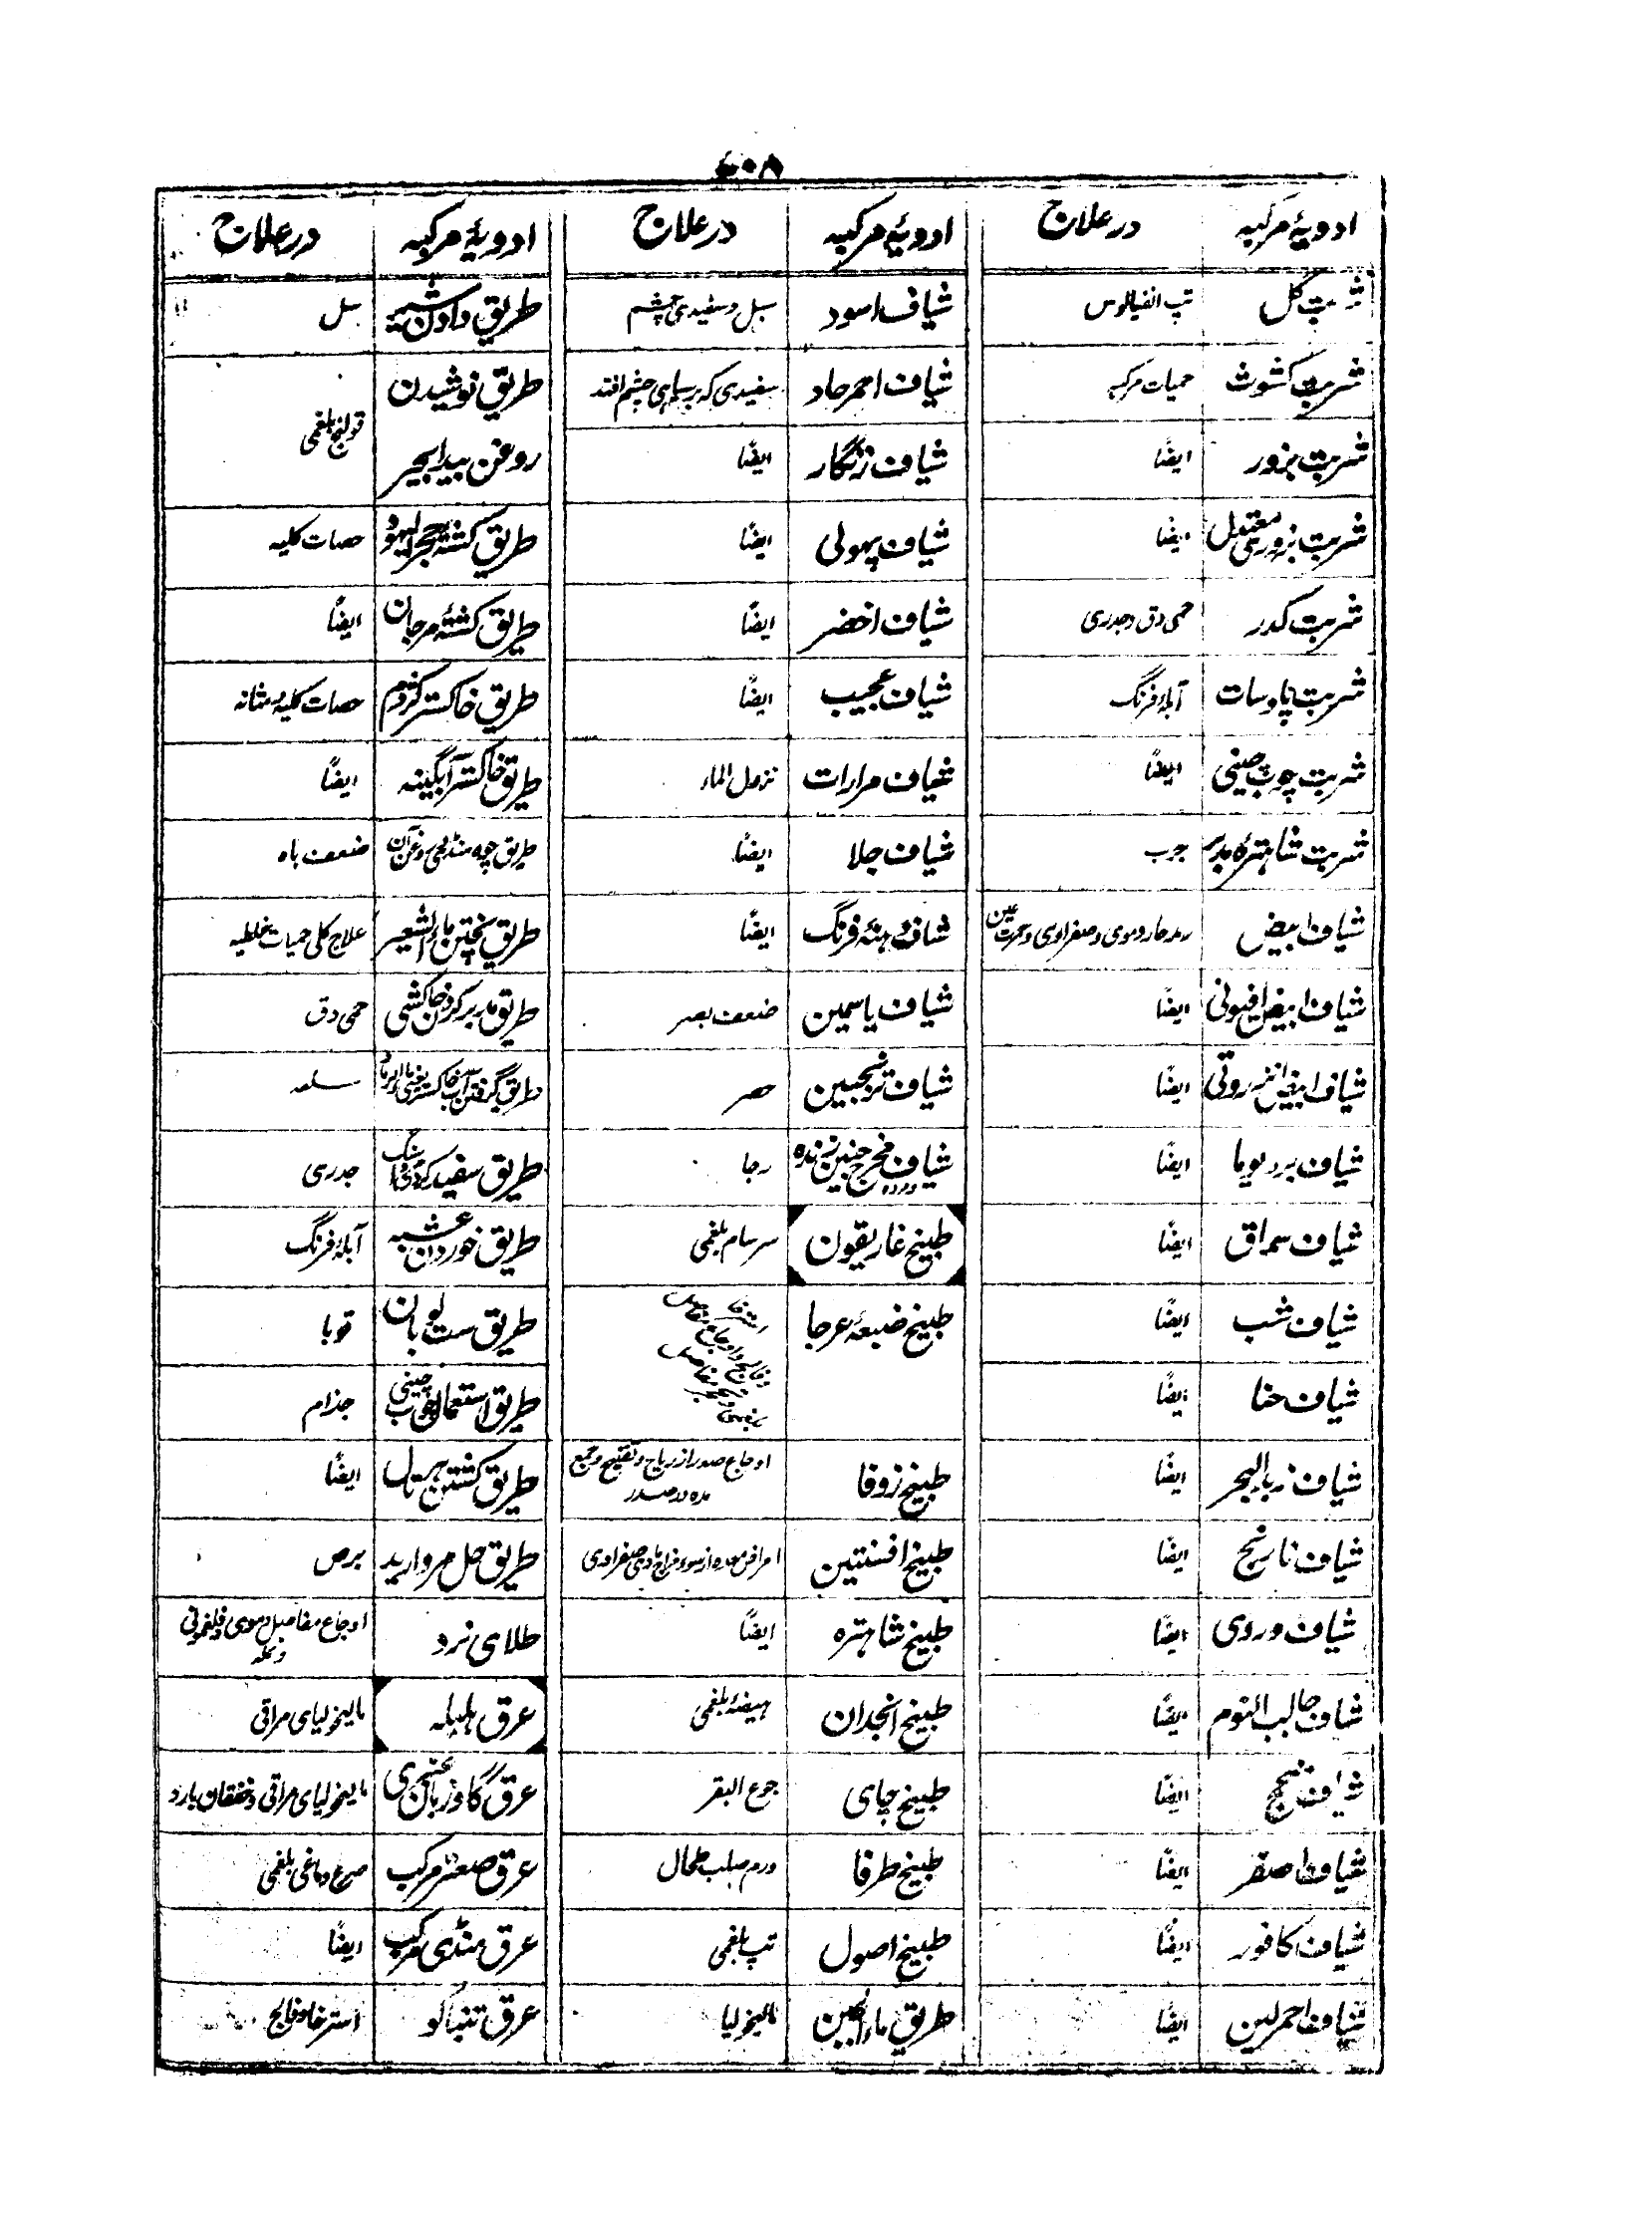 ادویهٔ مرکبه | در علاج | ادویهٔ مرکبه | در علاج | ادویهٔ مرکبه | در علاج
شربت گل | تپ انفیالوس | شیاف اسود | سبل و سفیدی چشم | طریق دادن شیر | سل
شربت کشوث | حمیات مرکبه | شیاف احمر حاد | سفیدی که بر سیاهی چشم افتد | طریق نوشیدن | قولنج بلغمی
شربت بزور | ایضًا | شیاف زنگار | ایضًا | روغن بیدانجیر
شربت بزوری معتدل | ایضًا | شیاف پهولی | ایضًا | طریق کشتهٔ حجر الیهود | حصات کلیه
شربت کدر | حمی دق و جدری | شیاف اخضر | ایضًا | طریق کشتهٔ مرجان | ایضًا
شربت پاوسات | آبلهٔ فرنگ | شیاف عجیب | ایضًا | طریق خاکستر کژدم | حصات کلیه و مثانه
شربت چوب چینی | ایضًا | شیاف مرارات | نزول الماء | طریق خاکستر آبگینه | ایضًا
شربت شاهتره مدبر | جرب | شیاف جلا | ایضًا | طریق چوه منڈی و روغن آن | ضعف باه
شیاف ابیض | رمد حار دموی و صفراوی و حمرت عین | شیاف دهنهٔ فرنگ | ایضًا | طریق پختن ماء الشعیر | علاج کلی حمیات خلطیه
شیاف ابیض افیونی | ایضًا | شیاف یاسمین | ضعف بصر | طریق مدبر کردن خاکشی | حمی دق
شیاف ابیض انزروتی | ایضًا | شیاف ترنجبین | حصر | طریق گرفتن آب خاکستر یعنی ماء الرماد | سلعه
شیاف بردیوما | ایضًا | شیاف مخرج جنین زنده و مرده | رجا | طریق سفید کردن سنگ | جدری
شیاف سماق | ایضًا | طبیخ غاریقون | سرسام بلغمی | طریق خوردن عشبه | آبلهٔ فرنگ
شیاف شب | ایضًا | طبیخ ضبعهٔ عرجا | استرخا و فالج و اوجاع مفاصل و تحجر مفاصل | طریق ست لوبان | قوبا
شیاف حنا | ایضًا | طریق استعمال چوب چینی | جذام
شیاف زبد البحر | ایضًا | طبیخ زوفا | اوجاع صدر از ریاح و تقیح و جمع مده در صدر | طریق کشتن هرتال | ایضًا
شیاف نارنج | ایضًا | طبیخ افسنتین | امراض معده از سوء مزاج مادی صفراوی | طریق حل مروارید | برص
شیاف وردی | ایضًا | طبیخ شاهتره | ایضًا | طلای نرد | اوجاع مفاصل دموی و فلغمونی و نمله
شیاف جالب النوم | ایضًا | طبیخ انجدان | هیضهٔ بلغمی | عرق هلیله | مالیخولیای مراقی
ایضًا | طبیخ چای | جوع البقر | عرق گاوزبان عنبری | مالیخولیای مراقی و خفقان بارد
شیاف اصفر | ایضًا | طبیخ طرفا | ورم صلب طحال | عرق صعتر مرکب | صرع دماغی بلغمی
شیاف کافور | ایضًا | طبیخ اصول | تپ بلغمی | عرق منڈی مرکب | ایضًا
شیاف احمر لین | ایضًا | طریق ماء الجبن | مالیخولیا | عرق تنباکو | استرخا و فالج